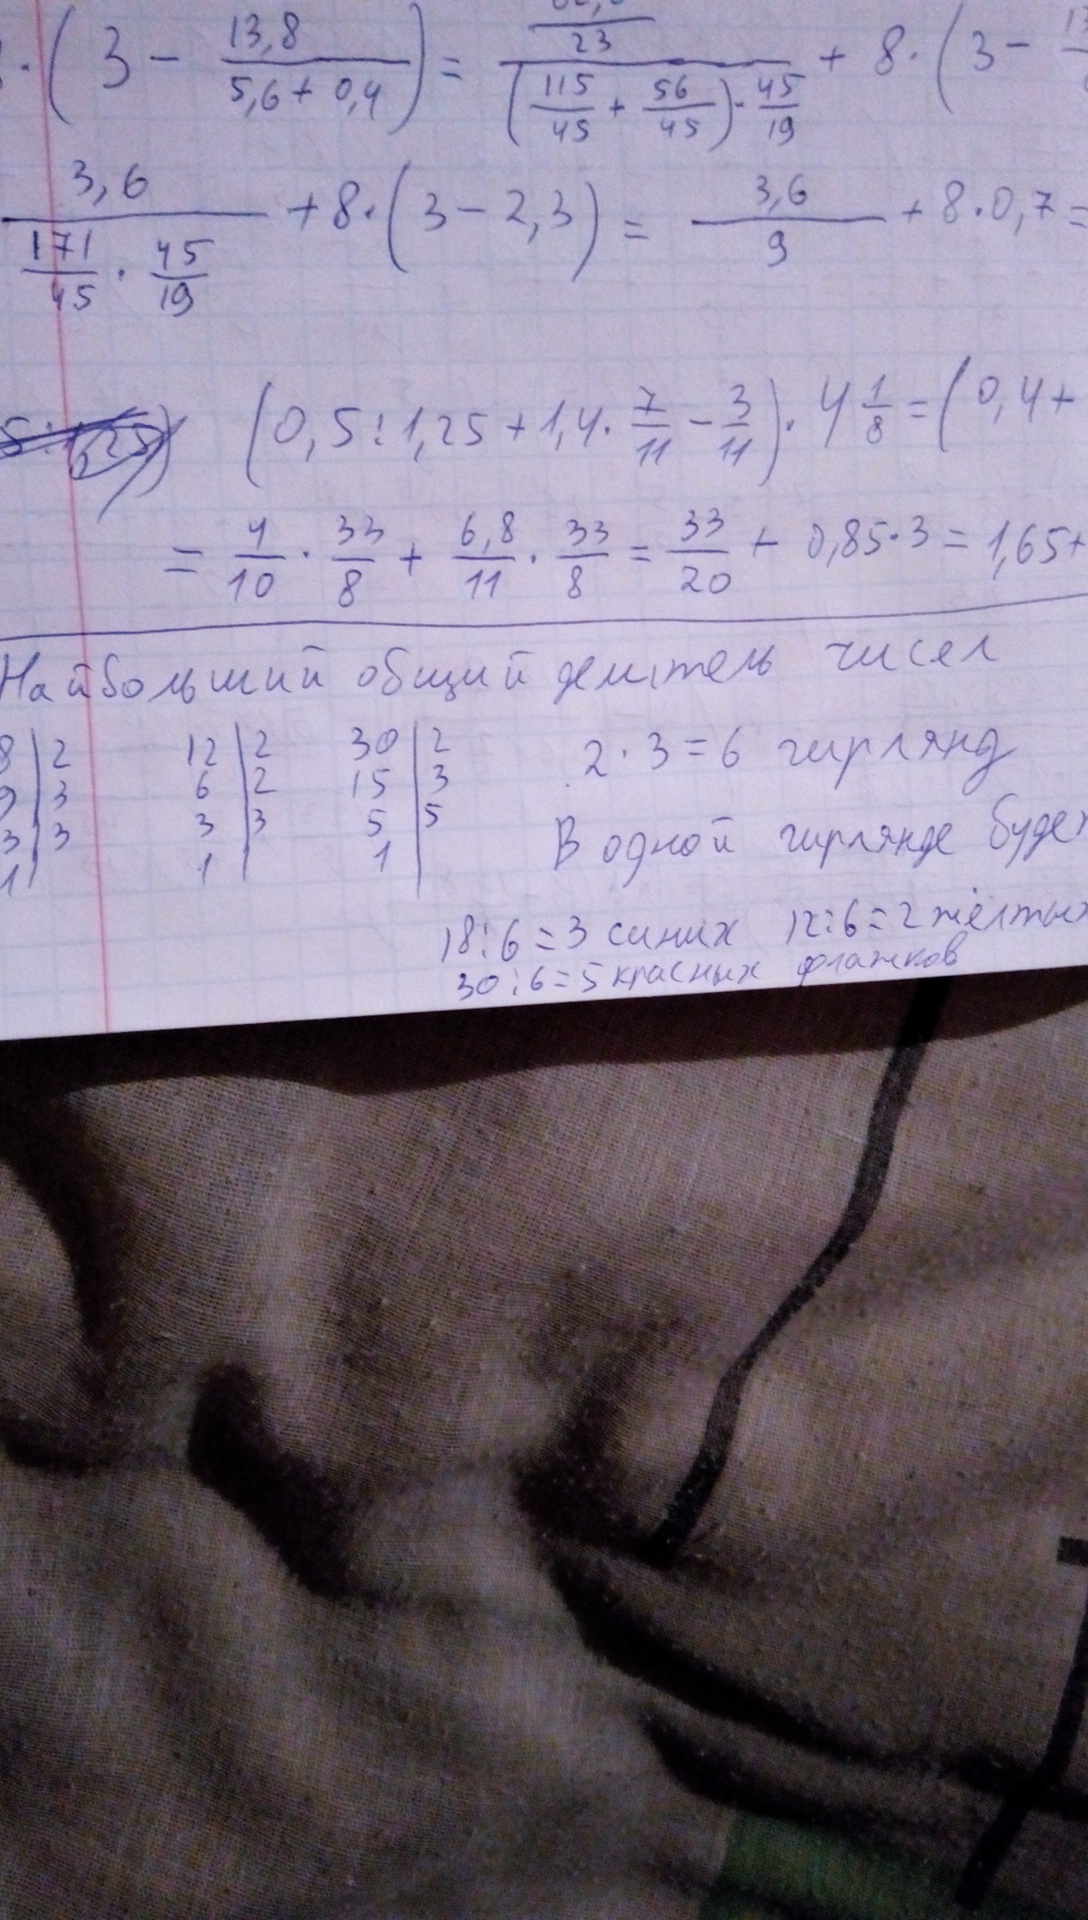 · ( 3 − 13,8 / (5,6 + 0,4) ) = 23 / ( (115/45 + 56/45) · 45/19 ) + 8 · ( 3 −
3,6 / (171/45 · 45/19) + 8 · ( 3 − 2,3 ) = 3,6 / 9 + 8 · 0,7 =
( 0,5 : 1,25 + 1,4 · 7/11 − 3/11 ) · 4 1/8 = ( 0,4 +
= 4/10 · 33/8 + 6,8/11 · 33/8 = 33/20 + 0,85 · 3 = 1,65 +
Найбольший общий делитель чисел
8 | 2 12 | 2 30 | 2 2 · 3 = 6 гирлянд
9 | 3 6 | 2 15 | 3
3 | 3 3 | 3 5 | 5 В одной гирлянде будет
1 | 1 | 1 |
18 : 6 = 3 синих 12 : 6 = 2 жёлтых
30 : 6 = 5 красных флажков